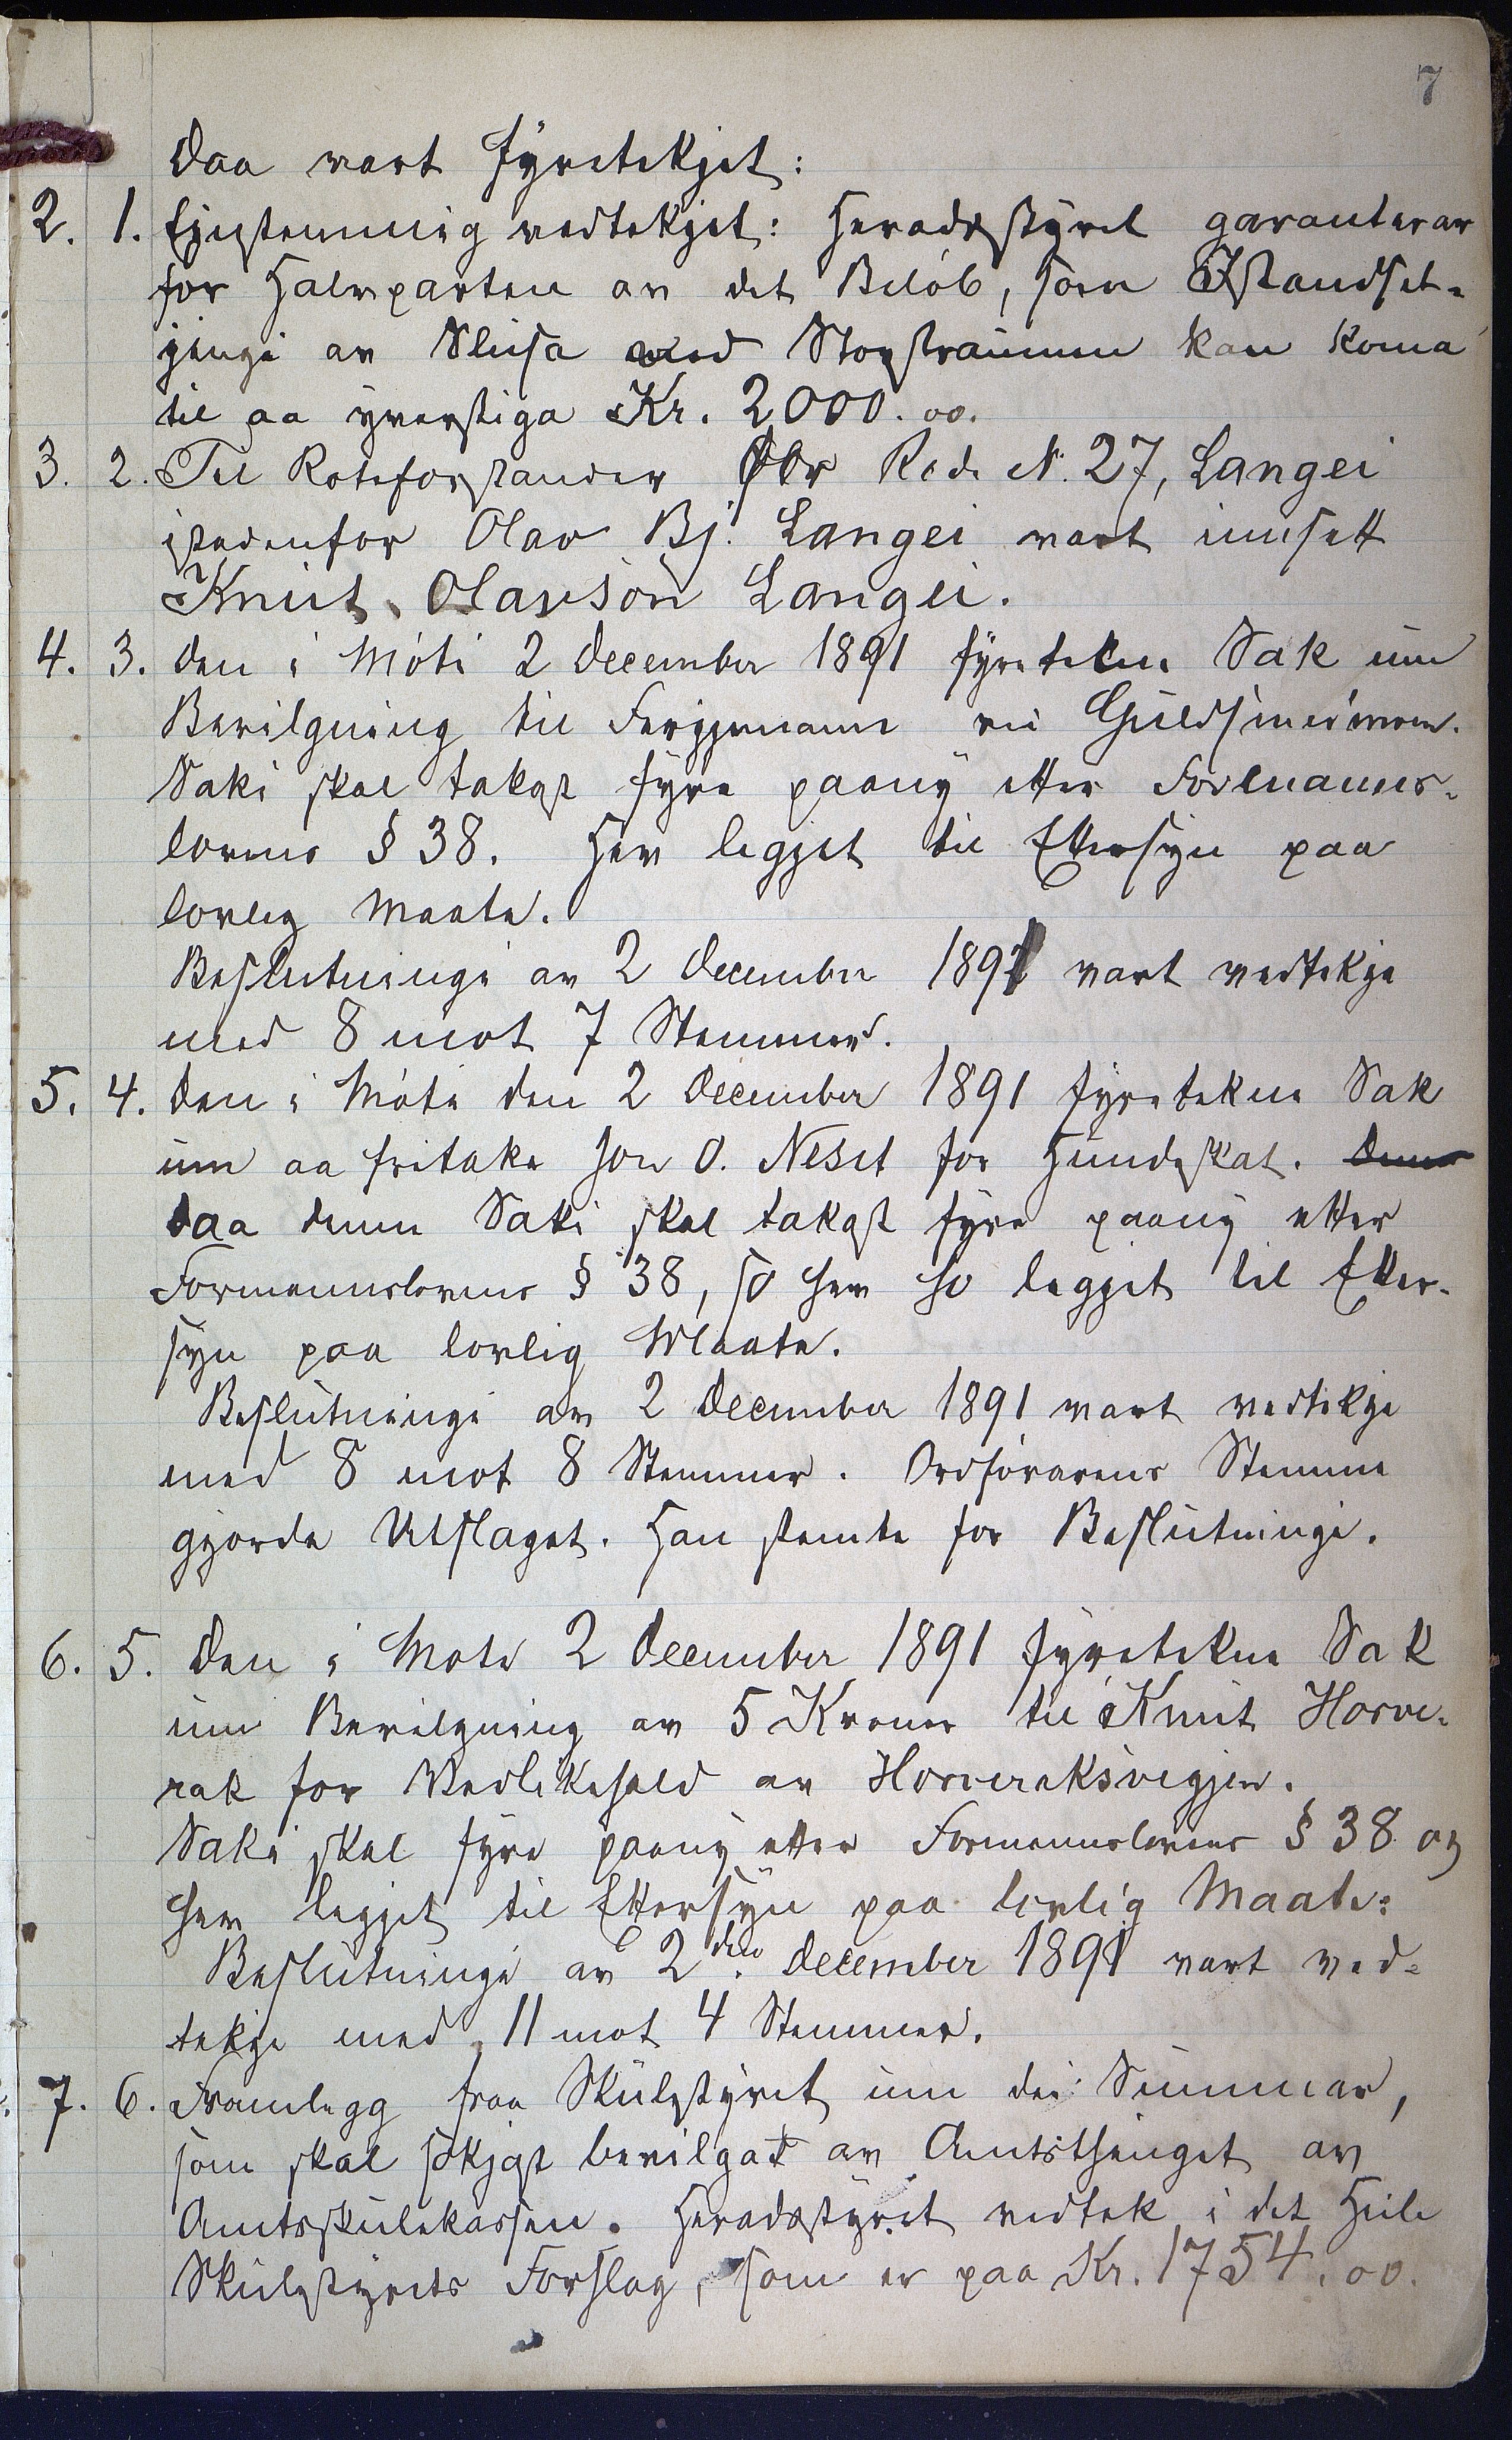 7
Daa vart fyretekjet:
2. 1. Einstemmig vedtekjet: Heradsstyret garanterar
for Halvparten av det Beløb, som Istandset-
jingi av Slusa ved Storstraumen kan koma
til aa yverstiga Kr. 2000.oo.
3. 2. Til Roteforstander for Rode N. 27, Langei
istadenfor Olav Bj. Langei vart innsett
Knut Olavson Langei.
4. 3. Den i Møte 2 December 1891 fyretekne Sak um
Bevilgning til Ferjjemann vii Guldsmedmoen.
Saki skal takast fyre paany etter Formanns-
lovens § 38. Hev legjet til Ettersyn paa
lovleg Maate.
Beslutningi av 2 December 1891 vart vedtekje
med 8 mot 7 Stemmer.
5. 4. Den i Møte den 2 December 1891 fyretekne Sak
um aa fritake Jon O. Neset for Hundeskat.
Daa denne Saki skal takast fyre paany etter
Formannslovens § 38, so hev ho legjet til Etter-
syn paa lovlig Maate.
Beslutningi av 2 December 1891 vart vedtekje
med 8 mot 8 Stemmer. Ordførarens Stemme
gjorde Utslaget. Han stemte for Beslutningi.
6. 5. Den i Møte 2 December 1891 fyretekne Sak
um Bevilgning av 5 Kroner til Knut Horve-
rak for Vedlikehald av Horveraksvegjen.
Saki skal fyre paany etter Formannslovens § 38 og
hev legjet til Ettersyn paa lovlig Maate:
Beslutningi av 2den December 1891 vart ved-
tekje med 11 mot 4 Stemmer.
7. 6. Framlegg fraa Skulestyret um dei Summar,
som skal søkjast bevilgat av Amtsthinget av
Amtsskulekassen. Heradsstyret vedtok i det Heile
Skulestyrets Forslag, som er paa Kr. 1754.oo.